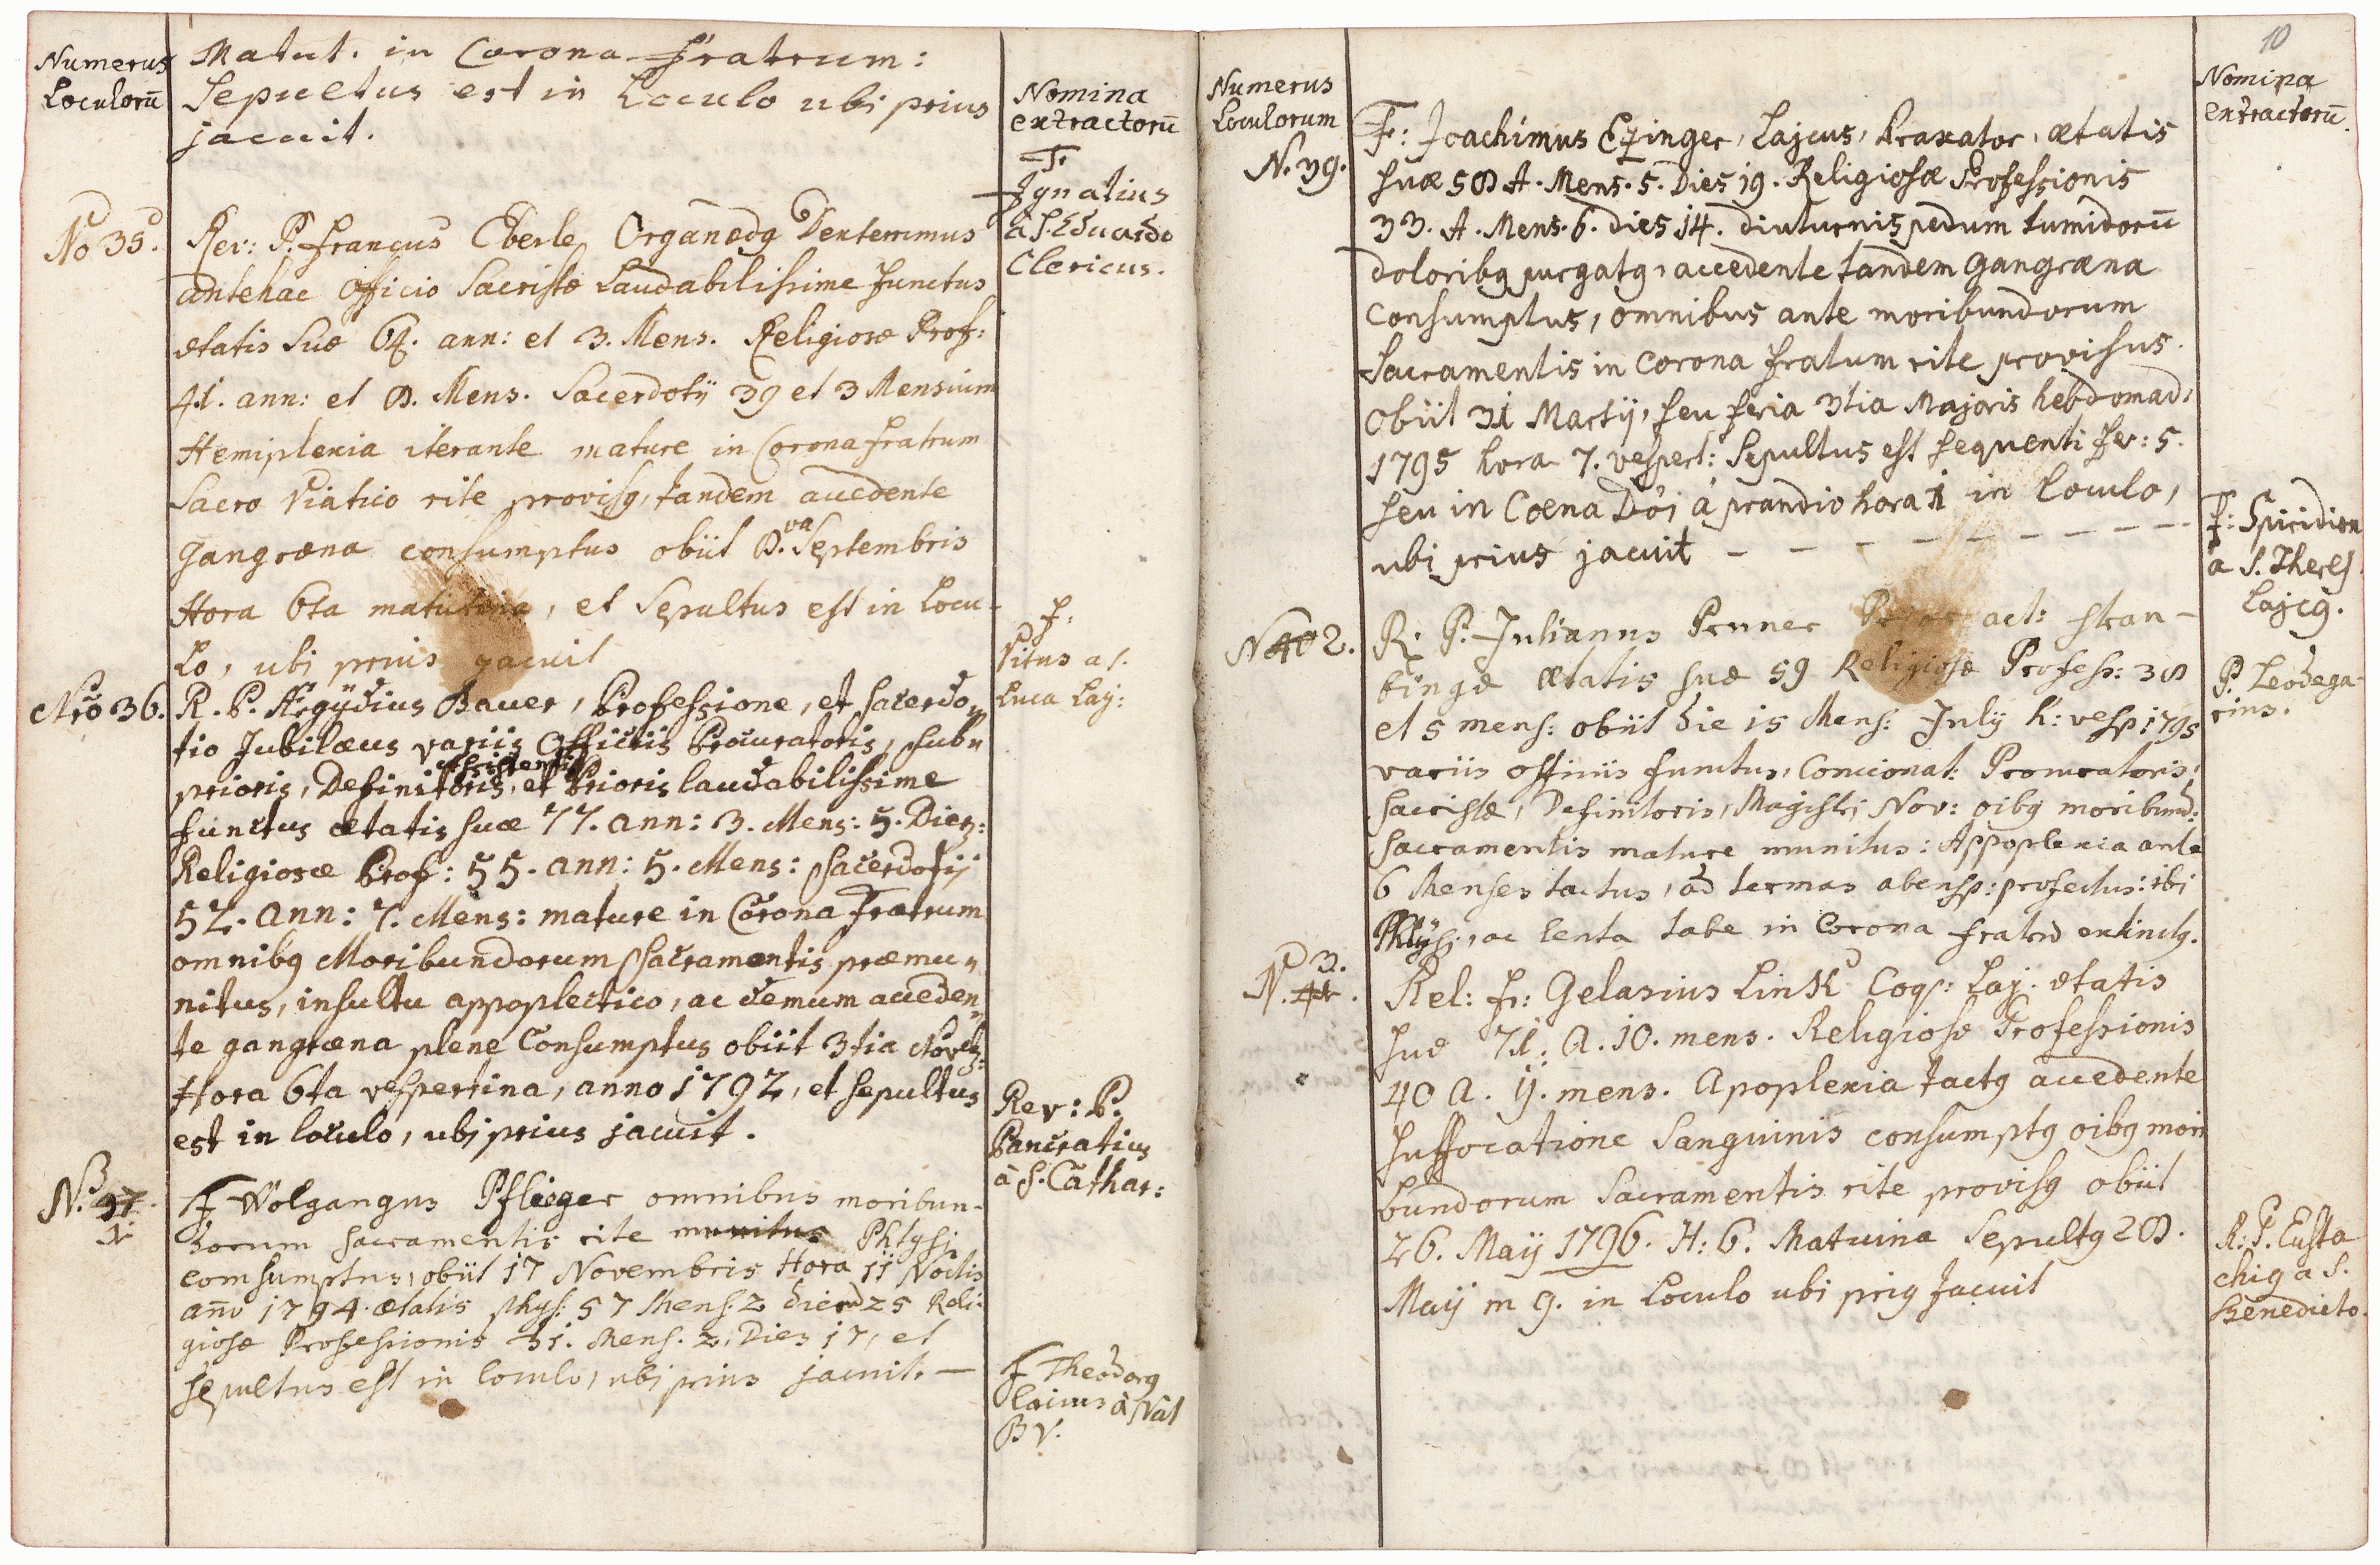 Numerus
Loculorū
Matut. in Corona Fratrum:
Sepultus est in Loculo ubi prius
jacuit.
Nomina
extractorū
F.
Ignatius
à S. Eduardo
Clericus.
No 35.
Rev: P. Francus Eberle Organædq Dexterrimus
antehac Officio Sacristæ Laudabilissime functus
ætatis Suæ 64. ann: et 3. Mens. Religiosæ Prof:
41. ann: et 8. Mens. Sacerdotij 39 et 3 Mensium
Hemiplexia iterante mature in Corona fratrum
Sacro Viatico rite provisq, tandem accedente
Gangræna consumptus obiit 8.va Septembris
Hora 6ta matutina, et Sepultus est in Locu-
Lo, ubi prius jacuit
F.
Vitus a S.
Luca Laj:
Nrō 36.
R. P. Ægÿdius Bauer, Professione, et sacerdo„
tio Jubilæus variis Officiis Procuratoris, sub„
prioris, Definitoris, assistentis et Prioris laudabilissime
functus ætatis suæ 77. ann: 3. Mens: 5. Dies:
Religiosæ Prof: 55. ann: 5. Mens: sacerdotij
52. ann: 7. Mens: mature in Corona Fratrum
omnibq Moribundorum sacramentis præmu„
nitus, insultu appoplectico, ac demum acceden„
te gangræna plene Consumptus obiit 3tia Novebr:
Hora 6ta vespertina, anno 1792, et sepultus
est in loculo, ubi prius jacuit.
Rev: P.
Pancratius
à S. Cathar:
N. 37.
1.
F Wolgangus Pflieger omnibus moribun-
dorum sacramentis rite munitus Phtysi
comsumptus, obiit 17 Novembris Hora 11 Noctis
año 1794. ætatis phys: 57 Mens: 2 dierū 25 Reli-
giosæ Professionis 31. Mens. 2, Dies 17, et
sepultus est in loculo, ubi prius jacuit. —
F Theodorq
laicus à Nat
B V.
10
Numerus
Loculorum
Nomina
extractorū.
N. 39.
F: Joachimus Ezinger, Lajcus, Braxator, ætatis
suæ 58 A. Mens. 5. Dies 19. Religiosæ Professionis
33. A. Mens. 6. dies 14. diuturnis pedum tumidorū
doloribq purgatq, accedente tandem Gangræna
Consumptus, omnibus ante moribundorum
Sacramentis in Corona fratum rite provisus.
Obiit 31 Martij, seu feria 3tia Majoris hebdomad:
1795 hora 7. vespert: Sepultus est sequenti Fer: 5.
seu in Coena Doi à prandio hora 1 in Loculo,
ubi prius jacuit — — — — — — — —
F: Spiridion
à S. Theres.
Lajcq.
N 40 2.
R. P. Julianus Pruner Prior act: stran-
bingæ Ætatis suæ 59 Religiosæ Profess: 38
et 5 mens: obiit die 15 Mens: July h: vesp 1795
variis officiis functus, Concionat: Procuratoris,
sacristæ, Definitoris, Magistri Nov: oibq moribund:
sacramentis mature munitus: Appoplexia ante
6 Menses tactus, ad termas abensp: profectus: ibi
Phtÿsi, ac lenta tabe in Corona fratrū extinctq.
P. Leodega-
rius.
3.
N. 41.
Rel: F: Gelasius Link Coqs: Laj. ætatis
suæ 71. A. 10. mens. Religiosæ Professionis
40 A. 11. mens. Apoplexia tactq accedente
suffocatione Sanguinis consumptq oibq mori
bundorum Sacramentis rite provisq obiit
26. Maij 1796. H: 6. Matutina Sepultq 28.
Maij m 9. in Loculo ubi priq jacuit
R. P. Eusta
chiq a S.
Benedicto.